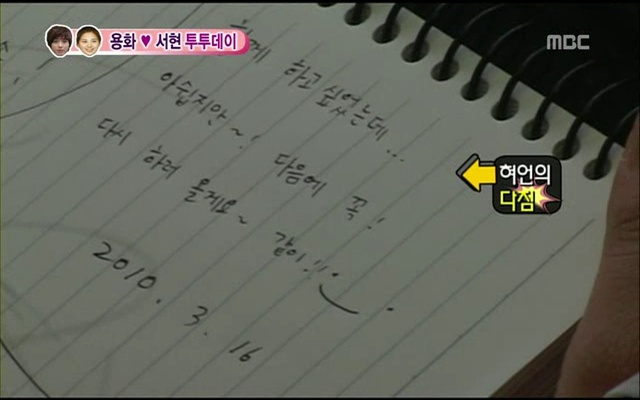 용화 ♥ 서현 투투데이
MBC
하고 싶었는데...
아쉽지만~! 다음에 꼭!
다시 하러 올게요~ 같이!!
2010. 3. 16
혀언의
다짐